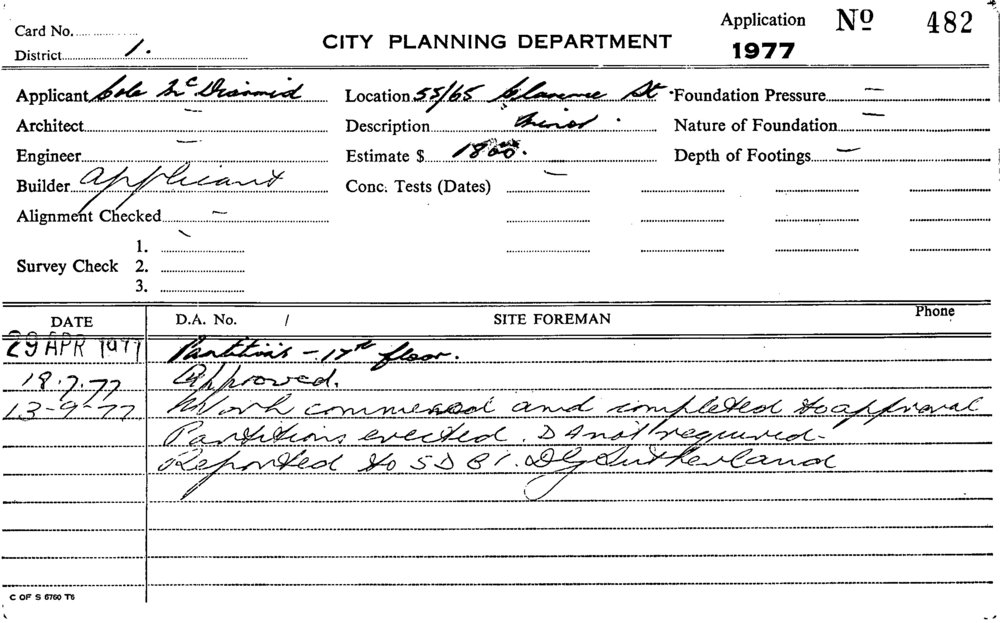 Application Nº 482
Card No.
District 1.
CITY PLANNING DEPARTMENT
1977
Applicant Cole McDiarmid Location 55/65 Clarence St. Foundation Pressure —
Architect — Description Minor. Nature of Foundation —
Engineer — Estimate $ 1800. Depth of Footings —
Builder Applicant Conc. Tests (Dates) —
Alignment Checked —
1.
Survey Check 2.
3.
DATE D.A. No. / SITE FOREMAN Phone
29 APR 1977 Partitions - 17th floor.
18.7.77 Approved.
13-9-77 Work commenced and completed to approval
Partitions erected. DA not required-
Reported to SDBI. DG Sutherland
C OF S 6760 T6